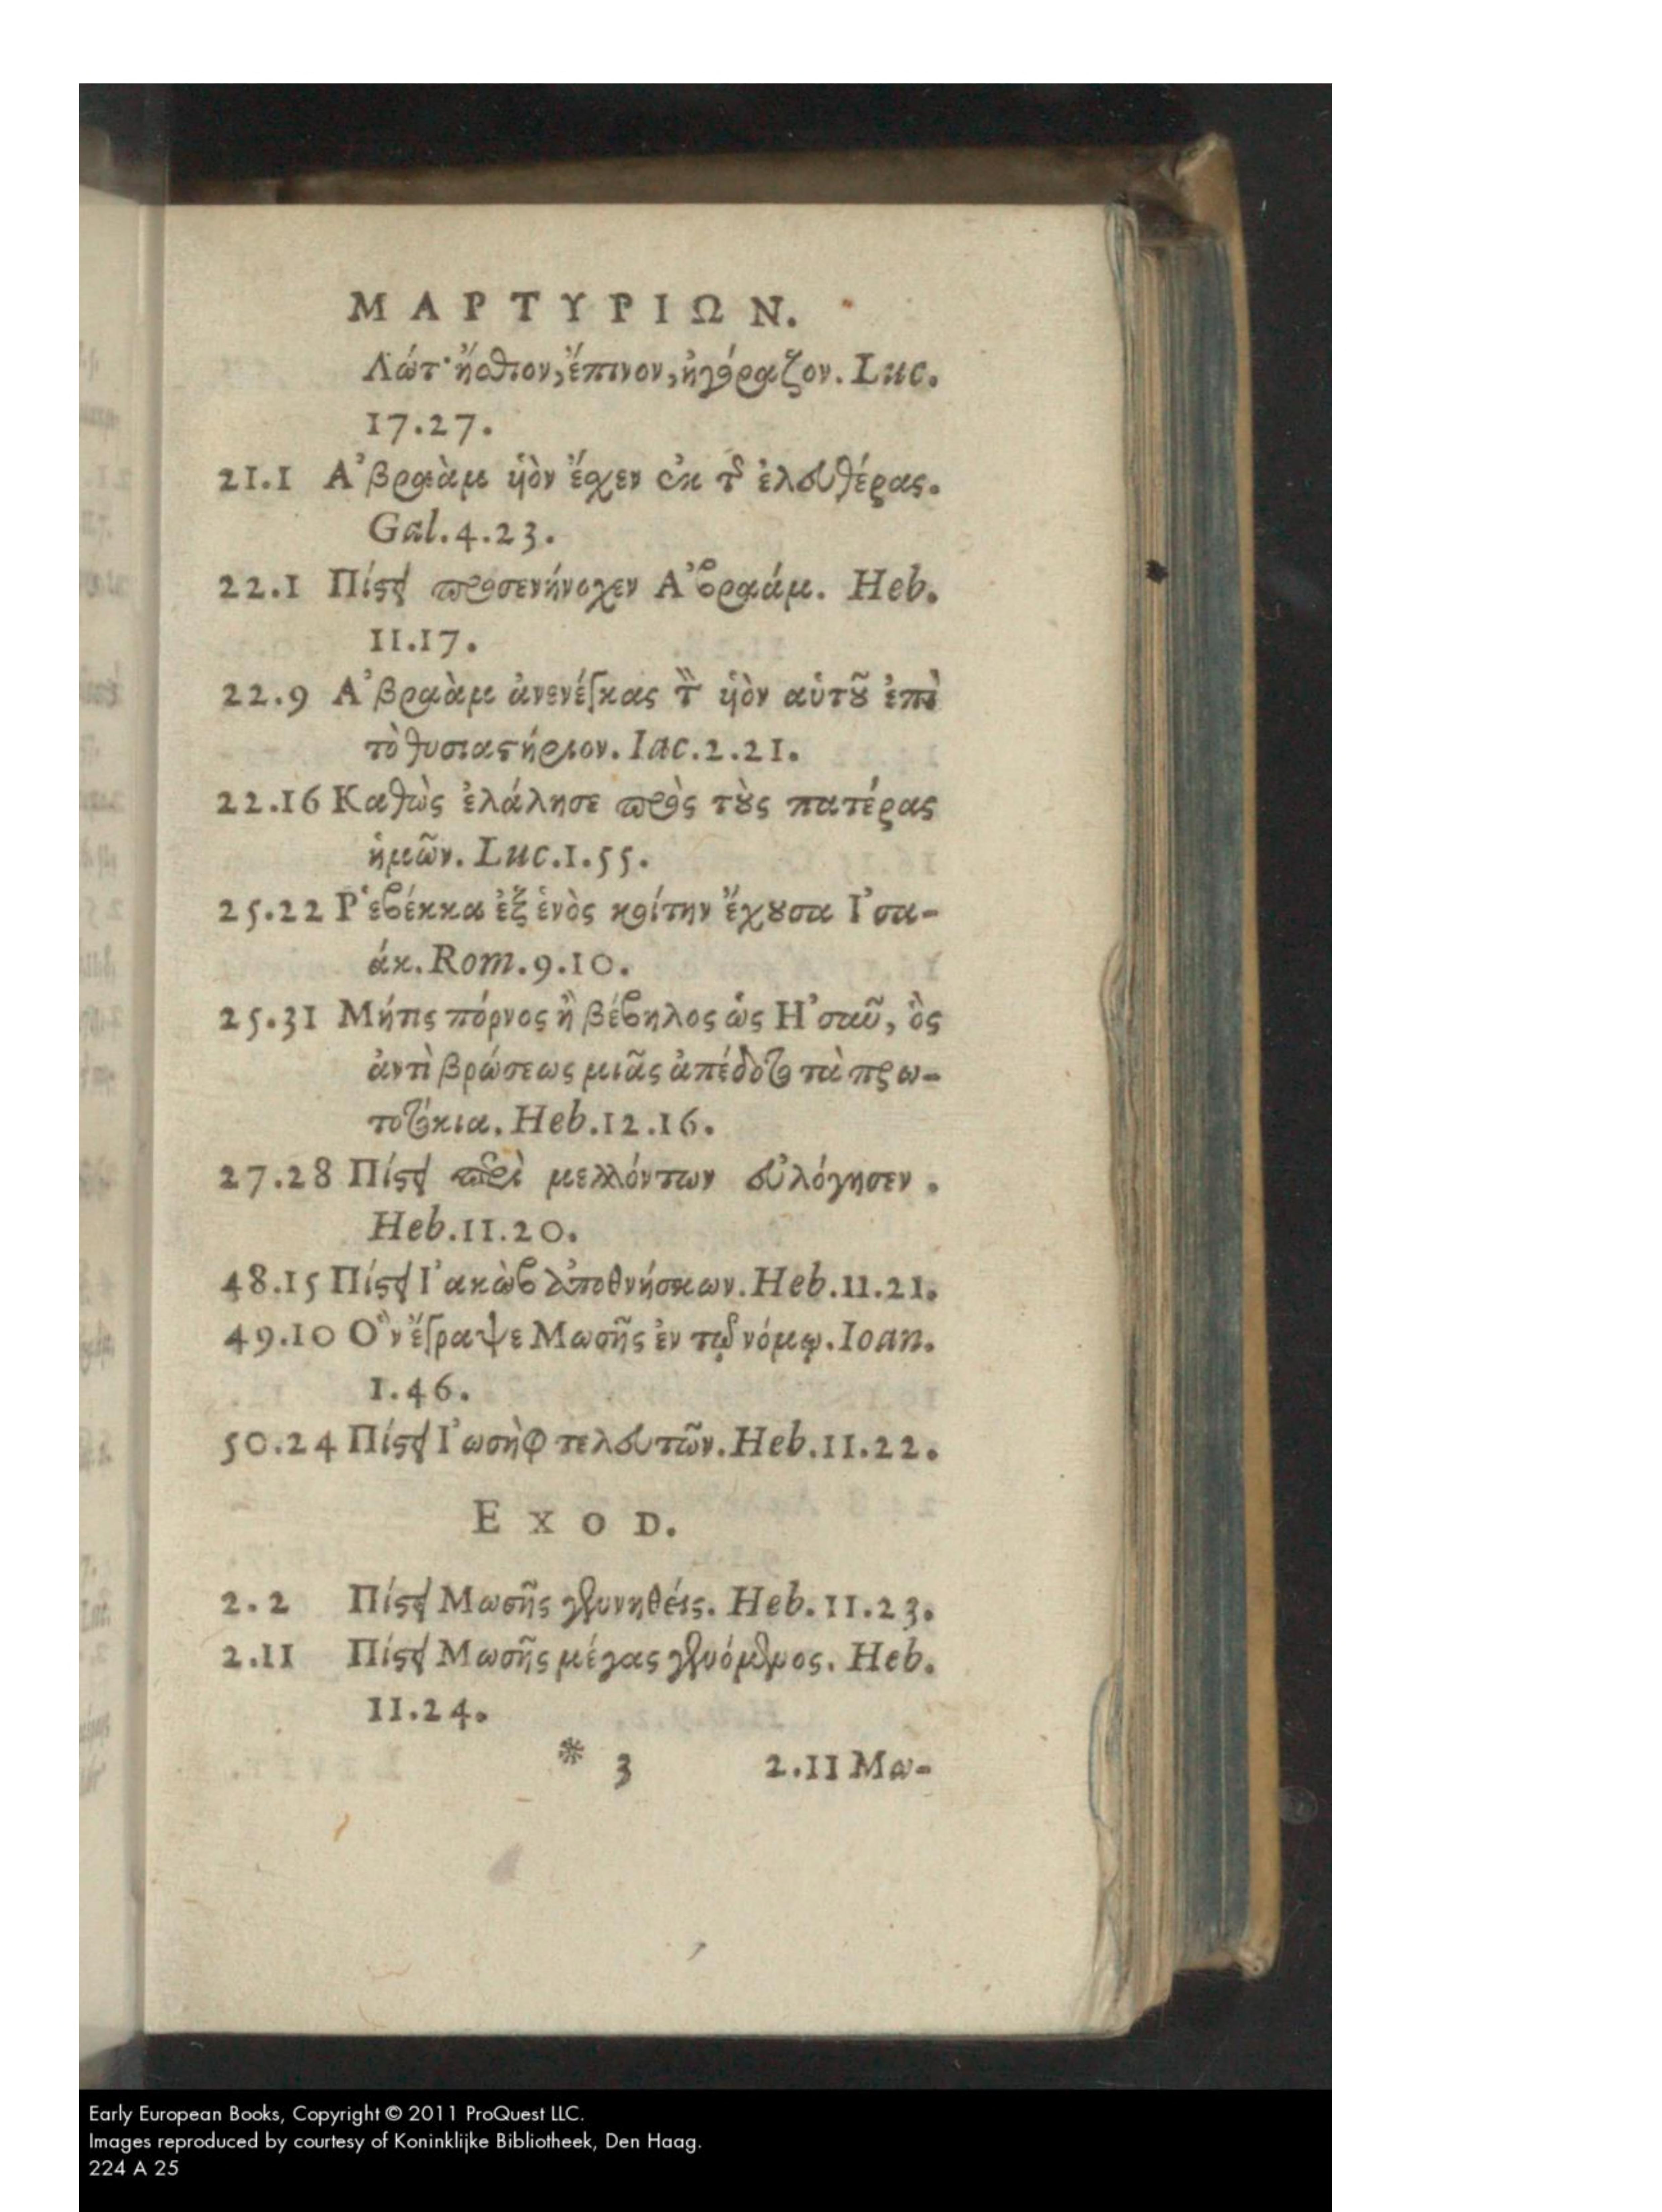 ΜΑΡΤΥΡΙΩΝ.
Λώτ· ἤσθιον, ἔπινον, ἠγόραζον. Luc.
17.27.
21.1 Ἀβραὰμ ὑὸν ἔχεν ἐκ τῆς ἐλευθέρας.
Gal.4.23.
22.1 Πίστει προσενήνοχεν Ἀβραάμ. Heb.
11.17.
22.9 Ἀβραὰμ ἀνενέγκας τὸν ὑὸν αὑτοῦ ἐπὶ
τὸ θυσιαστήριον. Iac.2.21.
22.16 Καθὼς ἐλάλησε πρὸς τοὺς πατέρας
ἡμῶν. Luc.1.55.
25.22 Ῥεβέκκα ἐξ ἑνὸς κοίτην ἔχουσα Ἰσα-
άκ. Rom.9.10.
25.31 Μήτις πόρνος ἢ βέβηλος ὡς Ἠσαῦ, ὃς
ἀντὶ βρώσεως μιᾶς ἀπέδοτο τὰ πρω-
τοτόκια. Heb.12.16.
27.28 Πίστει περὶ μελλόντων εὐλόγησεν.
Heb.11.20.
48.15 Πίστει Ἰακὼβ ἀποθνήσκων. Heb.11.21.
49.10 Ὃν ἔγραψε Μωσῆς ἐν τῷ νόμῳ. Ioan.
1.46.
50.24 Πίστει Ἰωσὴφ τελευτῶν. Heb.11.22.
EXOD.
2.2 Πίστει Μωσῆς γεννηθείς. Heb.11.23.
2.11 Πίστει Μωσῆς μέγας γενόμενος. Heb.
11.24.
* 3 2.11 Μω-
Early European Books, Copyright © 2011 ProQuest LLC.
Images reproduced by courtesy of Koninklijke Bibliotheek, Den Haag.
224 A 25